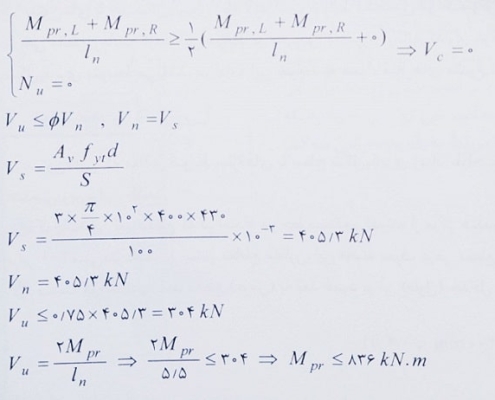 { (M_{pr,L} + M_{pr,R}) / l_n ≥ ۱/۲ ( (M_{pr,L} + M_{pr,R}) / l_n + ۰ ) ⇒ V_c = ۰
N_u = ۰
V_u ≤ φV_n , V_n = V_s
V_s = A_v f_{yt} d / S
V_s = (۳ × π/۴ × ۱۰^۲ × ۴۰۰ × ۴۳۰) / ۱۰۰ × ۱۰^{-۳} = ۴۰۵/۳ kN
V_n = ۴۰۵/۳ kN
V_u ≤ ۰/۷۵ × ۴۰۵/۳ = ۳۰۴ kN
V_u = ۲M_{pr} / l_n ⇒ ۲M_{pr} / ۵/۵ ≤ ۳۰۴ ⇒ M_{pr} ≤ ۸۳۶ kN.m